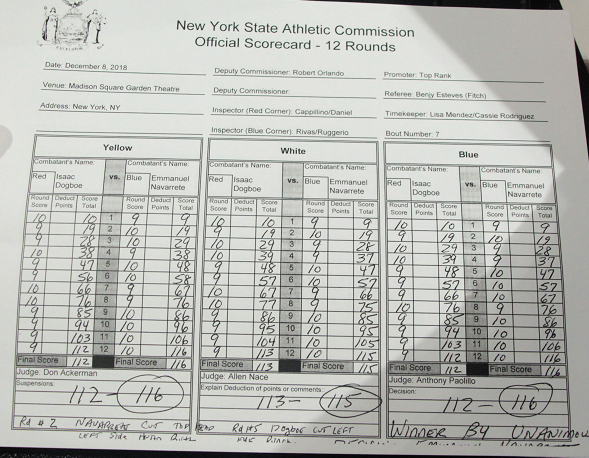 EXCELSIOR
New York State Athletic Commission
Official Scorecard - 12 Rounds
Date: December 8, 2018 Deputy Commissioner: Robert Orlando Promoter: Top Rank
Venue: Madison Square Garden Theatre Deputy Commissioner Referee: Benjy Esteves (Fitch)
Address: New York, NY Inspector (Red Corner): Cappillino/Daniel Timekeeper: Lisa Mendez/Cassie Rodriguez
Inspector (Blue Corner): Rivas/Ruggerio Bout Number: 7
Yellow
Combatant's Name: vs. Combatant's Name:
Red Isaac Dogboe Blue Emmanuel Navarrete
Round Score Deduct Points Score Total Round Score Deduct Points Score Total
10 10 1 9 9
9 19 2 10 19
9 28 3 10 29
10 38 4 9 38
9 47 5 10 48
9 56 6 10 58
10 66 7 9 67
10 76 8 9 76
9 85 9 10 86
9 94 10 10 96
9 103 11 10 106
9 112 12 10 116
Final Score 112 Final Score 116
Judge: Don Ackerman
Suspensions:
112 - 116
Rd # 2 NAVARRETE CUT TOP HEAD
LEFT Side
White
Combatant's Name: vs. Combatant's Name:
Red Isaac Dogboe Blue Emmanuel Navarrete
Round Score Deduct Points Score Total Round Score Deduct Points Score Total
10 10 1 9 9
9 19 2 10 19
10 29 3 9 28
10 39 4 9 37
9 48 5 10 47
9 57 6 10 57
10 67 7 9 66
10 77 8 9 75
9 86 9 10 85
9 95 10 10 95
9 104 11 10 105
9 113 12 10 115
Final Score 113 Final Score 115
Judge: Allen Nace
Explain Deduction of points or comments
113 - 115
Dogboe CUT LEFT
Blue
Combatant's Name: vs. Combatant's Name:
Red Isaac Dogboe Blue Emmanuel Navarrete
Round Score Deduct Points Score Total Round Score Deduct Points Score Total
10 10 1 9 9
9 19 2 10 19
10 29 3 9 28
10 39 4 9 37
9 48 5 10 47
9 57 6 10 57
9 66 7 10 67
10 76 8 9 76
9 85 9 10 86
9 94 10 10 96
9 103 11 10 106
9 112 12 10 116
Final Score 112 Final Score 116
Judge: Anthony Paolillo
Decision:
112 - 116
WINNER BY UNANIMOU